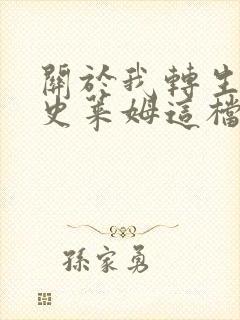 關於我轉生
史萊姆這檔
孫家勇